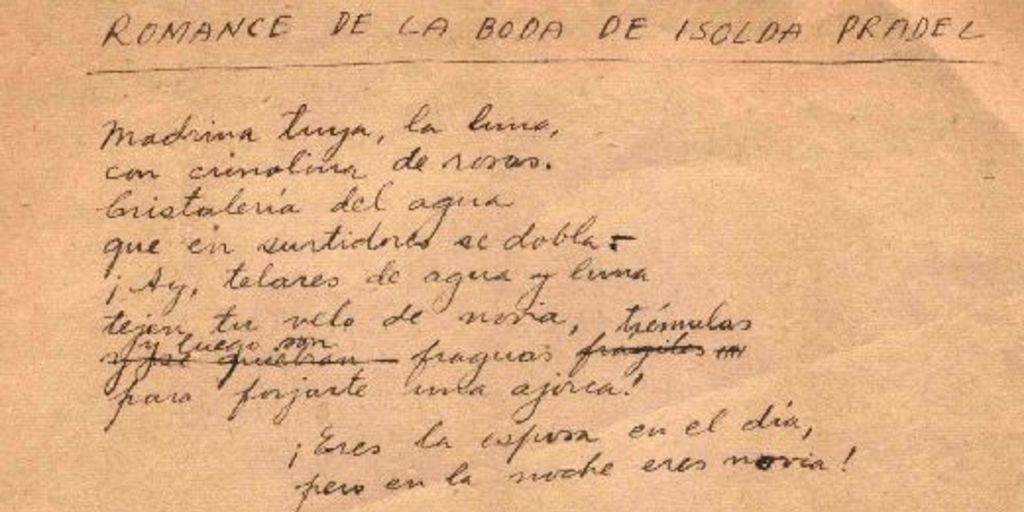 ROMANCE DE LA BODA DE ISOLDA PRADEL
Madrina tuya, la luna,
con crinolina de rosas.
Cristalería del agua
que en surtidores se dobla.
¡Ay, telares de agua y luna
tejen tu velo de novia, trémulas
y luego son
y se quiebran fraguas frágiles
para forjarte una ajorca!
¡Eres la esposa en el día,
pero en la noche eres novia!